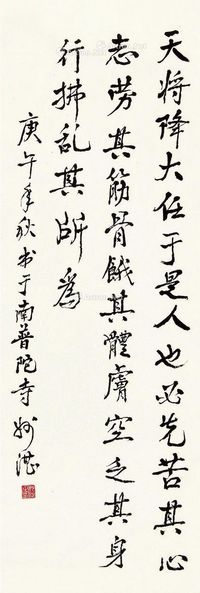 天将降大任于是人也必先苦其心
志劳其筋骨餓其體膚空乏其身
行拂乱其所為
庚午年秋书于南普陀寺妙湛